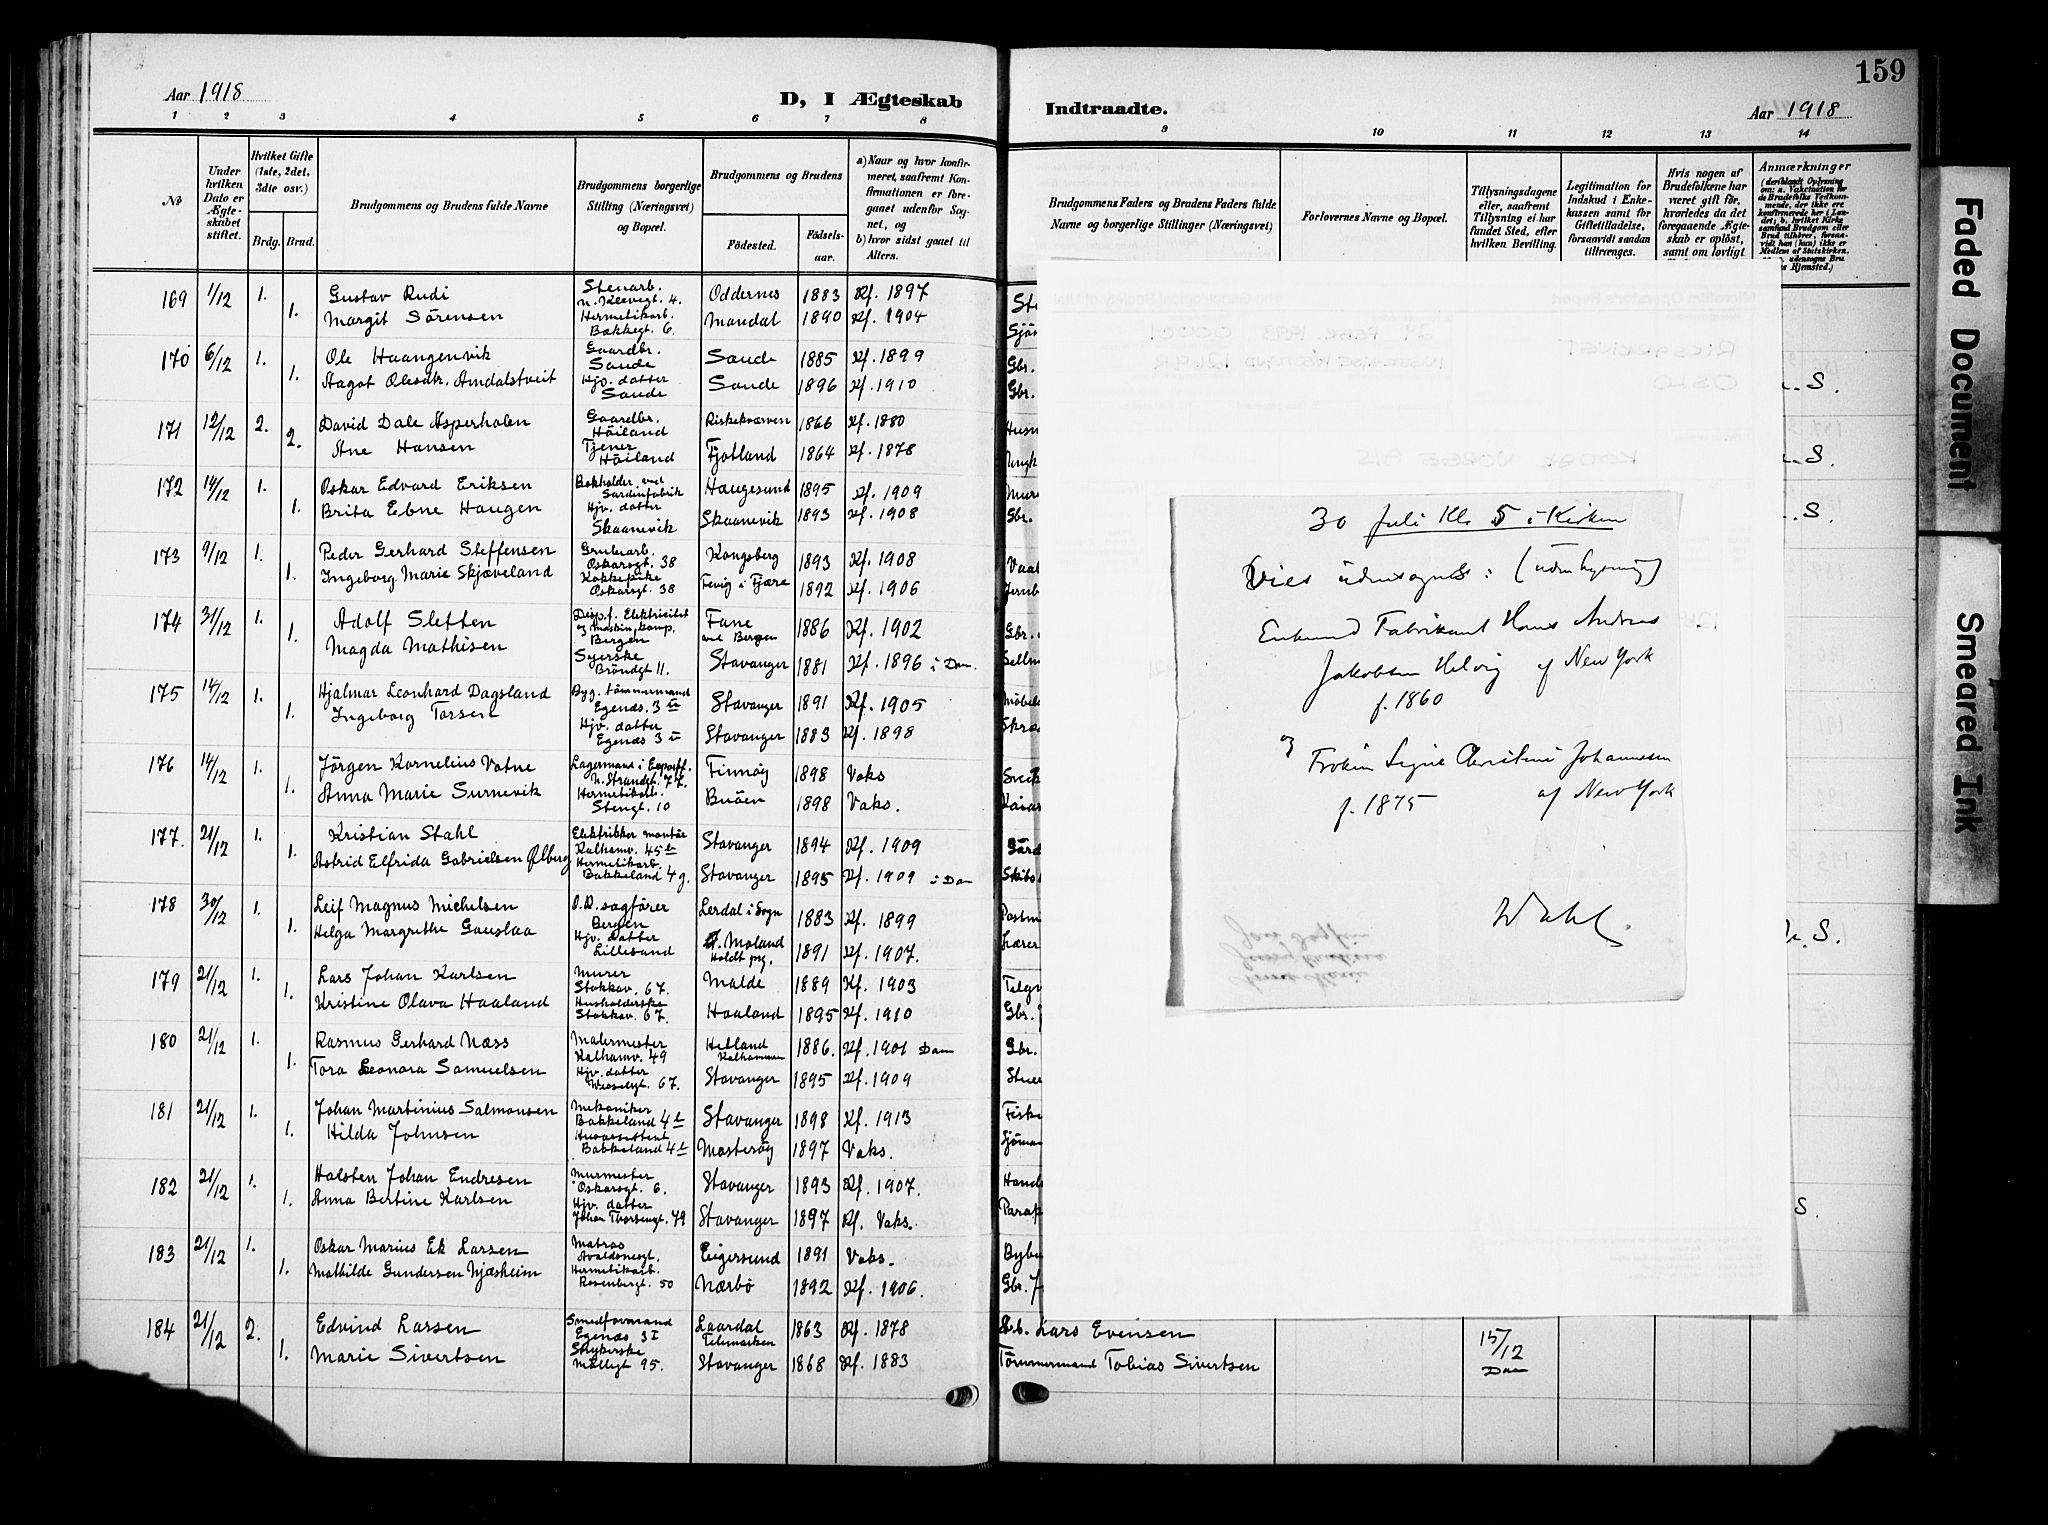 159
Aar 1918
D, I Ægteskab
Indtraadte.
Aar 1918
1 2 3 4 5 6 7 8
9 10 11 12 13 14
No
Under hvilken Dato er Ægteskabet stiftet.
Hvilket Gifte (1ste, 2det, 3die osv.)
Brdg. Brud.
Brudgommens og Brudens fulde Navne
Brudgommens borgerlige Stilling (Næringsvei) og Bopæl.
Brudgommens og Brudens
Fødested. Fødselsaar.
a) Naar og hvor konfirmeret, saafremt Konfirmationen er foregaaet udenfor Sognet, og
b) hvor sidst gaaet til Alters.
Brudgommens Faders og Brudens Faders fulde Navne og borgerlige Stillinger (Næringsvei)
Forlovernes Navne og Bopæl.
Tillysningsdagene eller, saafremt Tillysning ei har fundet Sted, efter hvilken Bevilling.
Legitimation for Indskud i Enkekassen samt for Giftetilladelse, forsaavidt saadan tiltrænges.
Hvis nogen af Brudefolkene har været gift før, hvorledes da det foregaaende Ægteskab er opløst, samt om lovligt
Anmærkninger
169 1/12 1. Gustav Rudi Stenarb. Oddernes 1883 Kf. 1897
N. Kleivegt. 4.
1. Margit Sörensen Hermetikarb. Mandal 1890 Kf. 1904
Bakkegt. 6.
170 6/12 1. Ole Haangenvik Gaardbr. Sande 1885 Kf. 1899 Gbr.
Sande
1. Aagot Olesdtr. Amdalstveit Hjv. datter Sande 1896 Kf. 1910 Gbr. S.
Sande
171 12/12 2. David Dale Asperholen Gaardbr. Riskekværven 1866 Kf. 1880
Höiland
2. Ane Hansen Tjener Fjotland 1864 Kf. 1878 S.
Höiland
172 14/12 1. Oskar Edvard Eriksen Bokholder ved Haugesund 1895 Kf. 1909
Sardinfabrik
1. Brita Ebne Haugen Hjv. datter Skaanevik 1893 Kf. 1908 Gbr. S.
Skaanevik
173 9/12 1. Peder Gerhard Steffensen Grubearb. Kongsberg 1893 Kf. 1908
Oskarsgt. 38
1. Ingeborg Marie Skjæveland Kokkepike Fevig i Fjære 1892 Kf. 1906
Oskarsgt. 38
174 31/12 1. Adolf Sletten Disp. f. Elektricitet Fane 1886 Kf. 1902 Gbr.
og Maskin komp. ved Bergen
Bergen
1. Magda Mathisen Syerske Stavanger 1881 Kf. 1896 i Dom.
Bröndgt 11.
175 14/12 1. Hjalmar Leonhard Dagsland Byg. tömmermand Stavanger 1891 Kf. 1905
Egenæs. 3
1. Ingeborg Torsen Hjv. datter Stavanger 1883 Kf. 1898
Egenæs 3
176 14/12 1. Jörgen Kornelius Vatne Lagermand i Exportf. Finnöy 1898 Vaks
N. Strandgt. 77.
1. Anna Marie Surnevik Hermetikarb. Buöen 1898 Vaks.
Stengt. 10
177. 21/12 1. Kristian Stahl Elektriker montör Stavanger 1894 Kf. 1909
Kalhamv. 45
1. Astrid Elfrida Gabrielsen Ølberg Hermetikarb. Stavanger 1895 Kf. 1909 i Dom
Bakkeland 4 g.
178 30/12 1. Leif Magnus Michelsen O.R. sagförer Lerdal i Sogn 1883 Kf. 1899
Bergen
1. Helga Margrethe Gauslaa Hjv. datter Moland 1891 Kf. 1907. S.
Lillesand Holdt prg.
179 21/12 1. Lars Johan Karlsen Murer Malde 1889 Kf. 1903
Stokkav. 67.
1. Kristine Olava Haaland Husholderske Haaland 1895 Kf. 1910 Gbr.
Stokkav. 67.
180 21/12 1. Rasmus Gerhard Næss Malermester Hetland 1886. Kf. 1901 Dom Gbr.
Kalhamv. 49 Kalhammer
1. Tora Leonora Samuelsen Hjv. datter Stavanger 1895 Kf. 1909
Wesselgt. 67.
181 21/12 1. Johan Martinius Salmonsen Mekaniker Stavanger 1898 Kf. 1913
Bakkeland 4
1. Hilda Johnsen Husassistent Mosteröy 1897 Vaks.
Bakkeland 4
182 21/12 1. Halsten Johan Endresen Murmester Stavanger 1893 Kf. 1907.
Oskarsgt. 6.
1. Anna Bertine Karlsen Hjv. datter Stavanger 1897 Kf. Vaks. S.
Johan Thorsengt. 79
183 21/12 1. Oskar Marius Ek Larsen Matros Eigersund 1891 Vaks.
Avaldsnesgt.
1. Mathilde Gundersen Njæsheim Hermetikarb. Nærbö 1892 Kf. 1906. Gbr.
Rosenbergt. 50
184 21/12 2. Edvind Larsen Smedformand Laardal 1863 Kf. 1878 Lars Evensen 15/12
Egenæs 3 I Telemarken Dom
1. Marie Sivertsen Strykerske Stavanger 1868 Kf. 1883 Tömmermand Tobias Sivertsen
Möllegt 95.
30 Juli Kl. 5 i Kirken
Vies udensogns:
Enkemand Fabrikant Hans Andreas
Jakobsen Helvig af New York
f. 1860
og
Frøken Signe Christine Johannesen
f. 1875 af New York
Wahl.
Faded Document
Smeared Ink